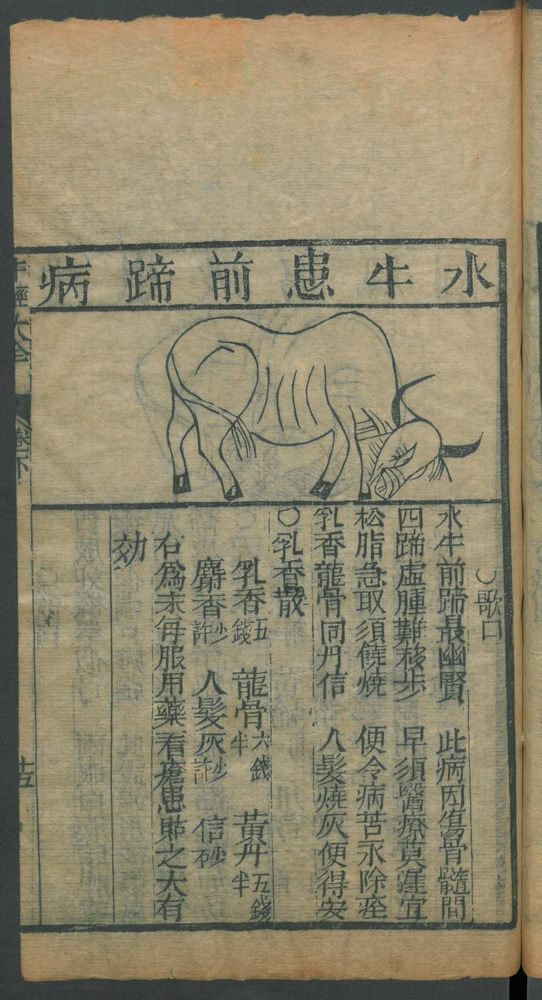 水牛患前蹄病
○歌曰
水牛前蹄最幽賢 此病因傷骨髓間
四蹄虛腫難移步 早須醫療莫違宜
松脂急取須饒燒 便令病苦永除痊
乳香龍骨同丹信 人髮燒灰便得安
○乳香散
乳香五錢 龍骨六錢半 黃丹五錢半
麝香少許 人髮灰少許 信砂
右爲末每服用藥看瘡患貼之大有
効
牛經大全 卷下 十五